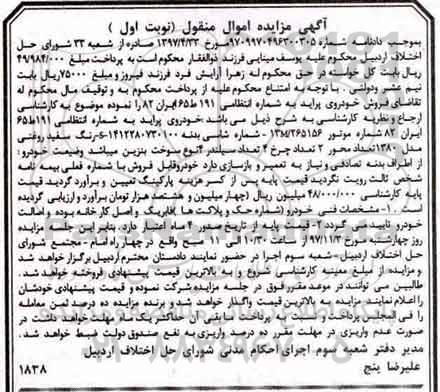 آگهی مزایده اموال منقول (نوبت اول )
بموجب دادنامه شماره ۹۷۰۹۹۷۰۴۹۶۳۰۰۳۰۵مورخ ۱۳۹۷/۴/۳۳ صادره از شعبه ۳۳ شورای حل
اختلاف اردبیل محکوم علیه یوسف مینایی فرزند ذوالفقار محکوم است به پرداخت مبلغ ۴۹/۹۸۴/۰۰۰
ریال بابت کل خواسته در حق محکوم له زهرا آرایش فرد فرزند فیروز و مبلغ ۷۵۰۰۰ریال بابت
نیم عشر ودولتی . با توجه به امتناع محکوم علیه از پرداخت محکوم به و توقیف مال محکوم له
تقاضای فروش خودروی پراید به شماره انتظامی ۱۹۱ط۶۵ایران ۸۲ را نموده موضوع به کارشناسی
ارجاع و نظریه کارشناسی به شرح ذیل می باشد.خودروی پراید به شماره انتظامی ۱۹۱ط۶۵
ایران ۸۲ شماره موتور ۲۶۵۱۵۶ - شماره شاسی بدنه ۱۴۱۲۲۸۰۷۳۰۱۰۰-S-رنگ سفید روغنی
مدل ۱۳۸۰تعداد محور ۲ تعداد چرخ ۴ تعداد سیلندر ۴نوع سوخت بنزین میباشد وضعیت خودرو :
از اطراف بدنه تصادفی و نیاز به تعمیر و بازسازی دارد خودروقابل فروش با شماره فعلی بیمه نامه
شخص ثالث رویت نگردید قیمت پایه پس از کسر هزینه پارکینگ تعیین و برآورد گردید. قیمت
پایه کارشناسی ۴۸/۰۰۰/۰۰۰ میلیون ریال (چهار میلیون و هشتصد هزار تومان برآورد و ارزیابی گردیده
است . ۱- مشخصات فنی خودرو (شماره حک و پلاکت ها )فابریک و اصل کارخانه بوده و اصالت
خودرو تایید می گردد ۲- قیمت پایه از تاریخ صدور ۶ ماه اعتبار دارد. بنابر این جلسه مزایده
روز چهارشنبه مورخ ۹۷/۱۱/۳ از ساعت ۱۰/۳۰ الی ۱۱ صبح واقع در چهار راه امام - مجتمع شورای
حل اختلاف اردبیل -شعبه سوم اجرا در حضور نمایند دادستان محترم اردبیل برگزار خواهد شد
و مزایده از مبلغ معینه کارشناسی شروع و به بالاترین قیمت پیشنهادی فروخته خواهد شد .
طالبین می توانند در موعد مقرر فوق در جلسه مزایده شرکت نموده و قیمت پیشنهادی خودشان
را اعلام نمایند مزایده به بالاترین قیمت واگذار خواهد شد و برنده مزایده ده درصد ثمن معامله
را فی المجلس پرداخت و نسبت به پرداخت مابقی آن حداکثر یک ماه مهلت خواهد داشت در
صورت عدم واریزی در مهلت مقرر ده درصد واریزی به نفع صندوق دولت ضبط خواهد شد .
مدیر دفتر شعبه سوم اجرای احکام مدنی شورای حل اختلاف اردبیل
علیرضا پنج
۱۸۳۸